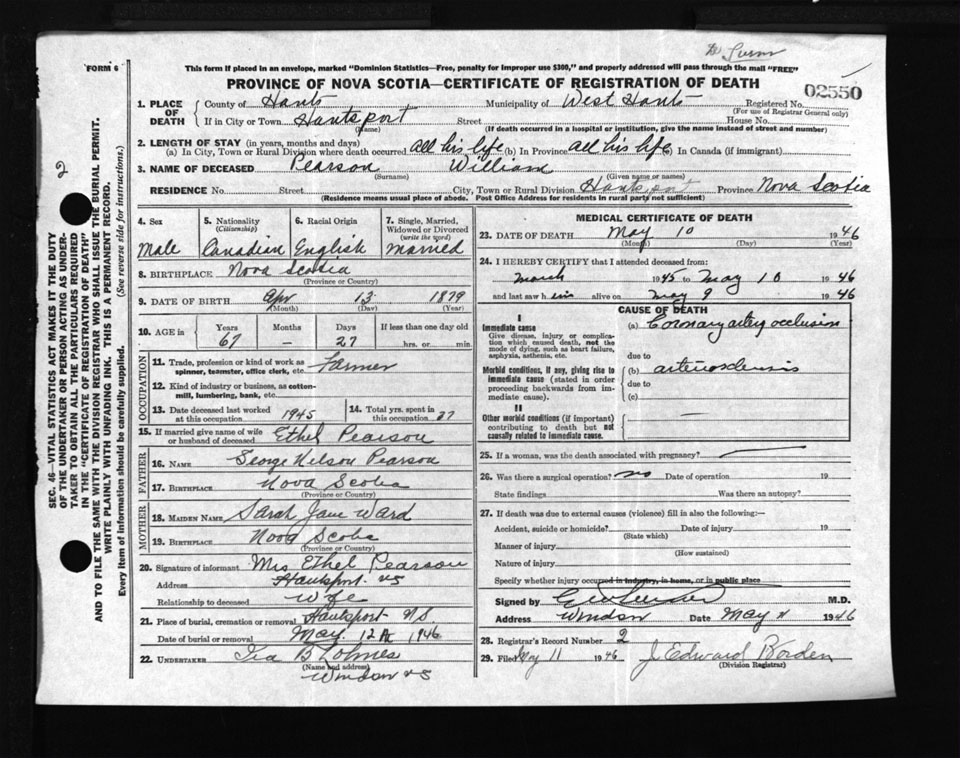 To
FORM 6
This form if placed in an envelope, marked "Dominion Statistics—Free, penalty for improper use $300," and properly addressed will pass through the mail "FREE"
PROVINCE OF NOVA SCOTIA—CERTIFICATE OF REGISTRATION OF DEATH
02550
1. PLACE OF DEATH County of Hants Municipality of West Hants Registered No.
(For use of Registrar General only)
If in City or Town Hantsport Street House No.
(Name) (If death occurred in a hospital or institution, give the name instead of street and number)
2. LENGTH OF STAY (in years, months and days)
(a) In City, Town or Rural Division where death occurred all his life (b) In Province all his life (c) In Canada (if immigrant)
3. NAME OF DECEASED Pearson William
(Surname) (Given name or names)
RESIDENCE No. Street City, Town or Rural Division Hantsport Province Nova Scotia
(Residence means usual place of abode. Post Office Address for residents in rural parts not sufficient)
2
SEC. 46—VITAL STATISTICS ACT MAKES IT THE DUTY
OF THE UNDERTAKER OR PERSON ACTING AS UNDER-
TAKER TO OBTAIN ALL THE PARTICULARS REQUIRED
IN THE "CERTIFICATE OF REGISTRATION OF DEATH"
AND TO FILE THE SAME WITH THE DIVISION REGISTRAR WHO SHALL ISSUE THE BURIAL PERMIT.
WRITE PLAINLY WITH UNFADING INK. THIS IS A PERMANENT RECORD.
Every item of information should be carefully supplied. (See reverse side for instructions.)
4. Sex 5. Nationality (Citizenship) 6. Racial Origin 7. Single, Married, Widowed or Divorced (write the word)
Male Canadian English Married
8. BIRTHPLACE Nova Scotia
(Province or Country)
9. DATE OF BIRTH Apr 13 1879
(Month) (Day) (Year)
10. AGE in Years Months Days If less than one day old
67 — 27 hrs. or min.
OCCUPATION
11. Trade, profession or kind of work as spinner, teamster, office clerk, etc. Farmer
12. Kind of industry or business, as cotton-mill, lumbering, bank, etc.
13. Date deceased last worked at this occupation 1945 14. Total yrs. spent in this occupation 27
15. If married give name of wife or husband of deceased Ethel Pearson
FATHER
16. NAME George Nelson Pearson
17. BIRTHPLACE Nova Scotia
(Province or Country)
MOTHER
18. MAIDEN NAME Sarah Jane Ward
19. BIRTHPLACE Nova Scotia
(Province or Country)
20. Signature of informant Mrs Ethel Pearson
Address Hantsport NS
Relationship to deceased Wife
21. Place of burial, cremation or removal Hantsport NS
Date of burial or removal May 12 1946
22. UNDERTAKER Ira B
(Name and address)
Windsor NS
MEDICAL CERTIFICATE OF DEATH
23. DATE OF DEATH May 10 1946
(Month) (Day) (Year)
24. I HEREBY CERTIFY that I attended deceased from:
March 1945 to May 10 1946
and last saw him alive on May 9 1946
CAUSE OF DEATH
I
Immediate cause
Give disease, injury or complication which caused death, not the mode of dying, such as heart failure, asphyxia, asthenia, etc.
(a) Coronary artery occlusion
due to
Morbid conditions, if any, giving rise to immediate cause (stated in order proceeding backwards from immediate cause).
(b) arteriosclerosis
due to
(c)
II
Other morbid conditions (if important) contributing to death but not causally related to immediate cause. —
25. If a woman, was the death associated with pregnancy? —
26. Was there a surgical operation? no Date of operation 19
State findings Was there an autopsy?
27. If death was due to external causes (violence) fill in also the following:—
Accident, suicide or homicide? Date of injury 19
(State which)
Manner of injury
(How sustained)
Nature of injury
Specify whether injury occurred in industry, in home, or in public place
Signed by M.D.
Address Windsor Date May 1946
28. Registrar's Record Number 2
29. Filed May 11 1946 J Edward Borden
(Division Registrar)